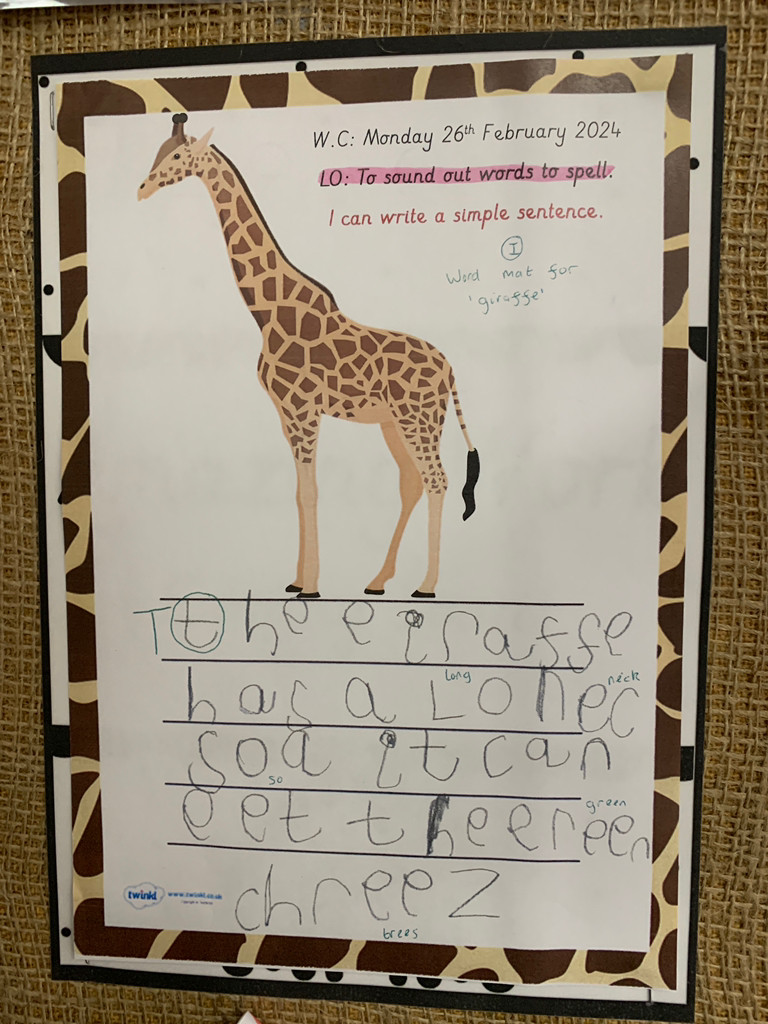 W.C: Monday 26th February 2024
LO: To sound out words to spell.
I can write a simple sentence.
I
Word mat for
'giraffe'
T the e giraffe
long neck
has a Lo nec
soa it can
so
green
eet t heereen
chreez
trees
twinkl www.twinkl.co.uk